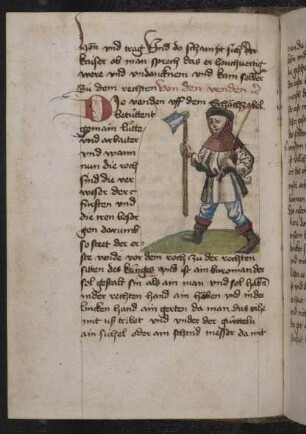 hon und trag Und do schampt sich der
kaiser ob man sprech das er hochuertig
were und undancknem und kam selber
zu dem rechten Von den venden
Die venden uff dem Schachzabel
betütent
gemain lütte
und arbaiter
und wann
nun die roch
sind die ver
weser der
fürsten und
die iren besor
gen darumb
so stet der er
ste vende vor dem roch zu der rechten
sitten des künges und ist ain buwman der
sol gestalt sin als ain man und sol habn
in der rechten hand ain howen und in der
lincken hand ain gerten da man das vihe
mit us tribet und under der gürteln
ain sichel oder ain schnid messer da mit